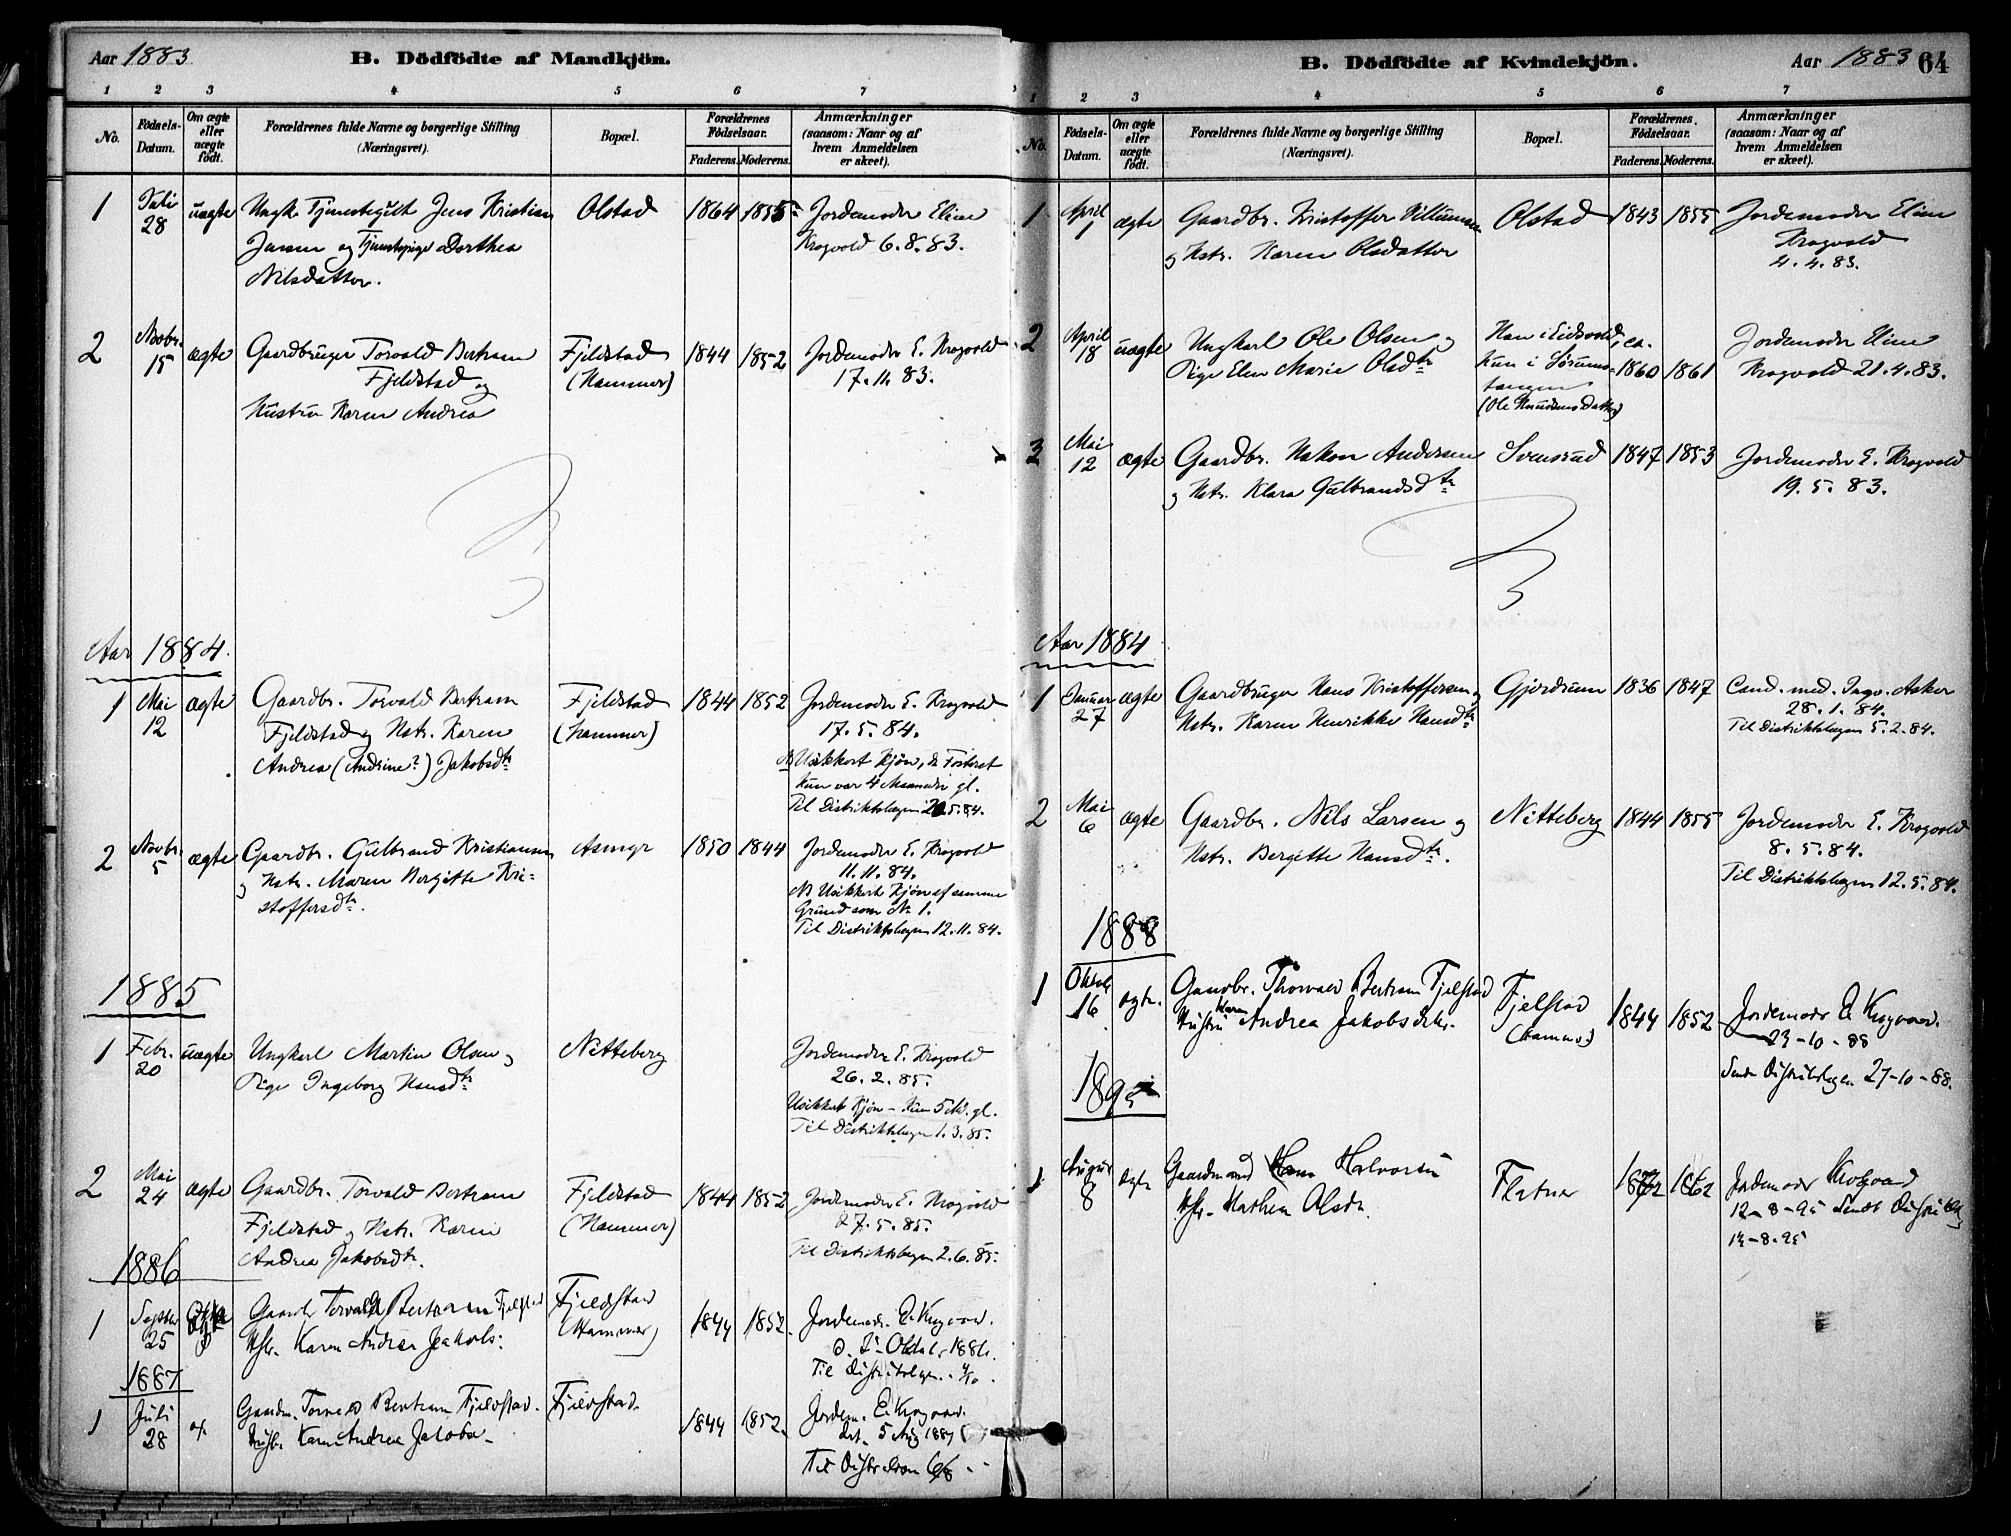 Aar 1883
B. Dödfödte af Mandkjön.
1 2 3 4 5 6 7
No.
Födsels-Datum.
Om ægte eller uægte födt.
Forældrenes fulde Navne og borgerlige Stilling (Næringsvei).
Bopæl.
Forældrenes Födselsaar.
Faderens. Moderens.
Anmærkninger (saasom: Naar og af hvem Anmeldelsen er skeet).
1 Juli 28 uægte Ungk. Tjenestegut Jens Kristian Olstad 1864 1855 Jordemoder Eline
Jensen og Tjenestepige Dorthea Krogvold 6.8.83.
Nilsdatter.
2 Novbr. 15 ægte Gaardbruger Torvald Bertram Fjeldstad 1844 1852 Jordemoder E. Krogvold
Fjeldstad og (Hammer) 17.11.83.
Hustru Karen Andrea
Aar 1884.
1 Mai 12 ægte Gaardbr. Torvald Bertram Fjeldstad 1844 1852 Jordemoder E. Krogvold
Fjeldstad og Hstr. Karen (Hammer) 17.5.84.
Andrea (Andrine?) Jakobsdtr NB Usikkert Kjøn, da Fosteret
kun var 4 Maaneder gl.
Til Distriktslægen 20.5.84.
2 Novbr. 5 ægte Gaardbr. Gulbrand Kristiansen Asmyr 1850 1844 Jordemoder E. Krogvold
og Hstr. Maren Bergitte Kri- 11.11.84.
stoffersdtr. NB Usikkert Kjøn af samme
Grund som No 1.
Til Distriktslægen 12.11.84.
1885
1 Febr. 20 uægte Ungkarl Martin Olsen og Nitteberg Jordemoder E. Krogvold
Pige Ingeborg Hansdtr 26.2.85.
Usikkert Kjøn - kun 5 M. gl.
Til Distriktslægen 1.3.85.
2 Mai 24 ægte Gaardbr. Torvald Bertram Fjeldstad 1844 1852 Jordemoder E. Krogvold
Fjeldstad og Hstr. Karen (Hammer) 27.5.85.
Andrea Jakobsdtr. Til Distriktslægen 2.6.85.
1886
1 Septbr 25 Gaardbr Torvald Bertram Fjelstad Fjeldstad 1844 1852. Jordemodr. E. Krogvold.
Hstr. Karen Andrea Jakobs: (Hammer) d. 2 Oktobr 1886.
Til Distriktslægen
1887
1 Juli 28 Gaardm. Torvald Bertram Fjeldstad. Fjeldstad. 1844 1852. Jordem. E. Krogvold.
Hustr. Karen Andrea Jakobs- 5 Aug 1887
Til 6/8
B. Dödfödte af Kvindekjön.
Aar 1883 64
1 2 3 4 5 6 7
No.
Födsels-Datum.
Om ægte eller uægte födt.
Forældrenes fulde Navne og borgerlige Stilling (Næringsvei).
Bopæl.
Forældrenes Födselsaar.
Faderens. Moderens.
Anmærkninger (saasom: Naar og af hvem Anmeldelsen er skeet).
1 April 1 ægte Gaardbr. Kristoffer Olstad 1843 1855 Jordemoder Eline
og Hstr. Karen Olsdatter Krogvold
4.4.83.
2 April 18 uægte Ungkarl Ole Olsen og Han i Eidsvold, ca. Jordemoder Eline
Pige Elen Marie Olsdtr Hun i Sørums- 1860 1861 Krogvold 21.4.83.
tangen
(Ole Knudsens Datter)
3 Mai 12 ægte Gaardbr. Hakon Andersen Svensrud 1847 1853 Jordemoder E. Krogvold
og Hstr. Klara Gulbrandsdtr 19.5.83.
Aar 1884
1 Januar 27 ægte Gaardbruger Hans Kristoffersen og Gjerdrum 1836 1847 Cand. med. Ingv. Asker
Hstr. Karen Henrikke Hansdtr 28.1.84.
Til Distriktslægen 5.2.84.
2 Mai 6 ægte Gaardbr. Nils Larsen og Nitteberg 1844 1855 Jordemoder E. Krogvold
Hstr. Bergitte Hansdtr. 8.5.84.
Til Distriktslægen 12.5.84.
1888
1 Oktobr 16 ægte. Gaardbr. Thorvald Bertram Fjelstad Fjelstad 1844 1852 Jordemodr E Krogvold.
Hustru Karen Andrea Jakobsdtr. (Hammer) 23-10-88
Sendt Distriktslægen 27-10-88.
1895
1 August 8 ægte Gaardmand Halvorsen Flatner 1862 Jordemoder Krogvold
Hstr. Mathea Olsdr. 12-8-95 Sendt Distriktslæg
-8-95